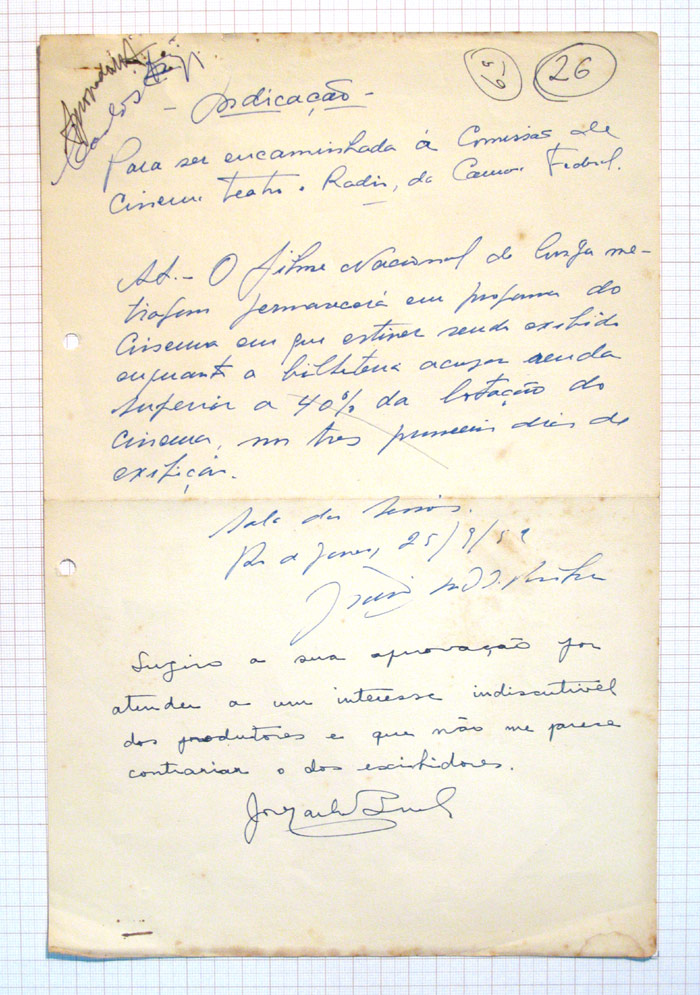 6-9
26
- Indicação -
Para ser encaminhada à Comissão de
Cinema Teatro e Radio, da Camara Federal.
Art. - O filme Nacional de longa me-
tragem permanecerá em programa do
Cinema em que estiver sendo exibido
enquanto a bilheteria acusar renda
superior a 40% da lotação do
cinema, nos tres primeiros dias de
exibição.
Sala das Sessões.
Rio de Janeiro, 25/9/52
Sugiro a sua aprovação por
atender a um interesse indiscutivel
dos produtores e que não me parece
contrariar o dos exibidores.